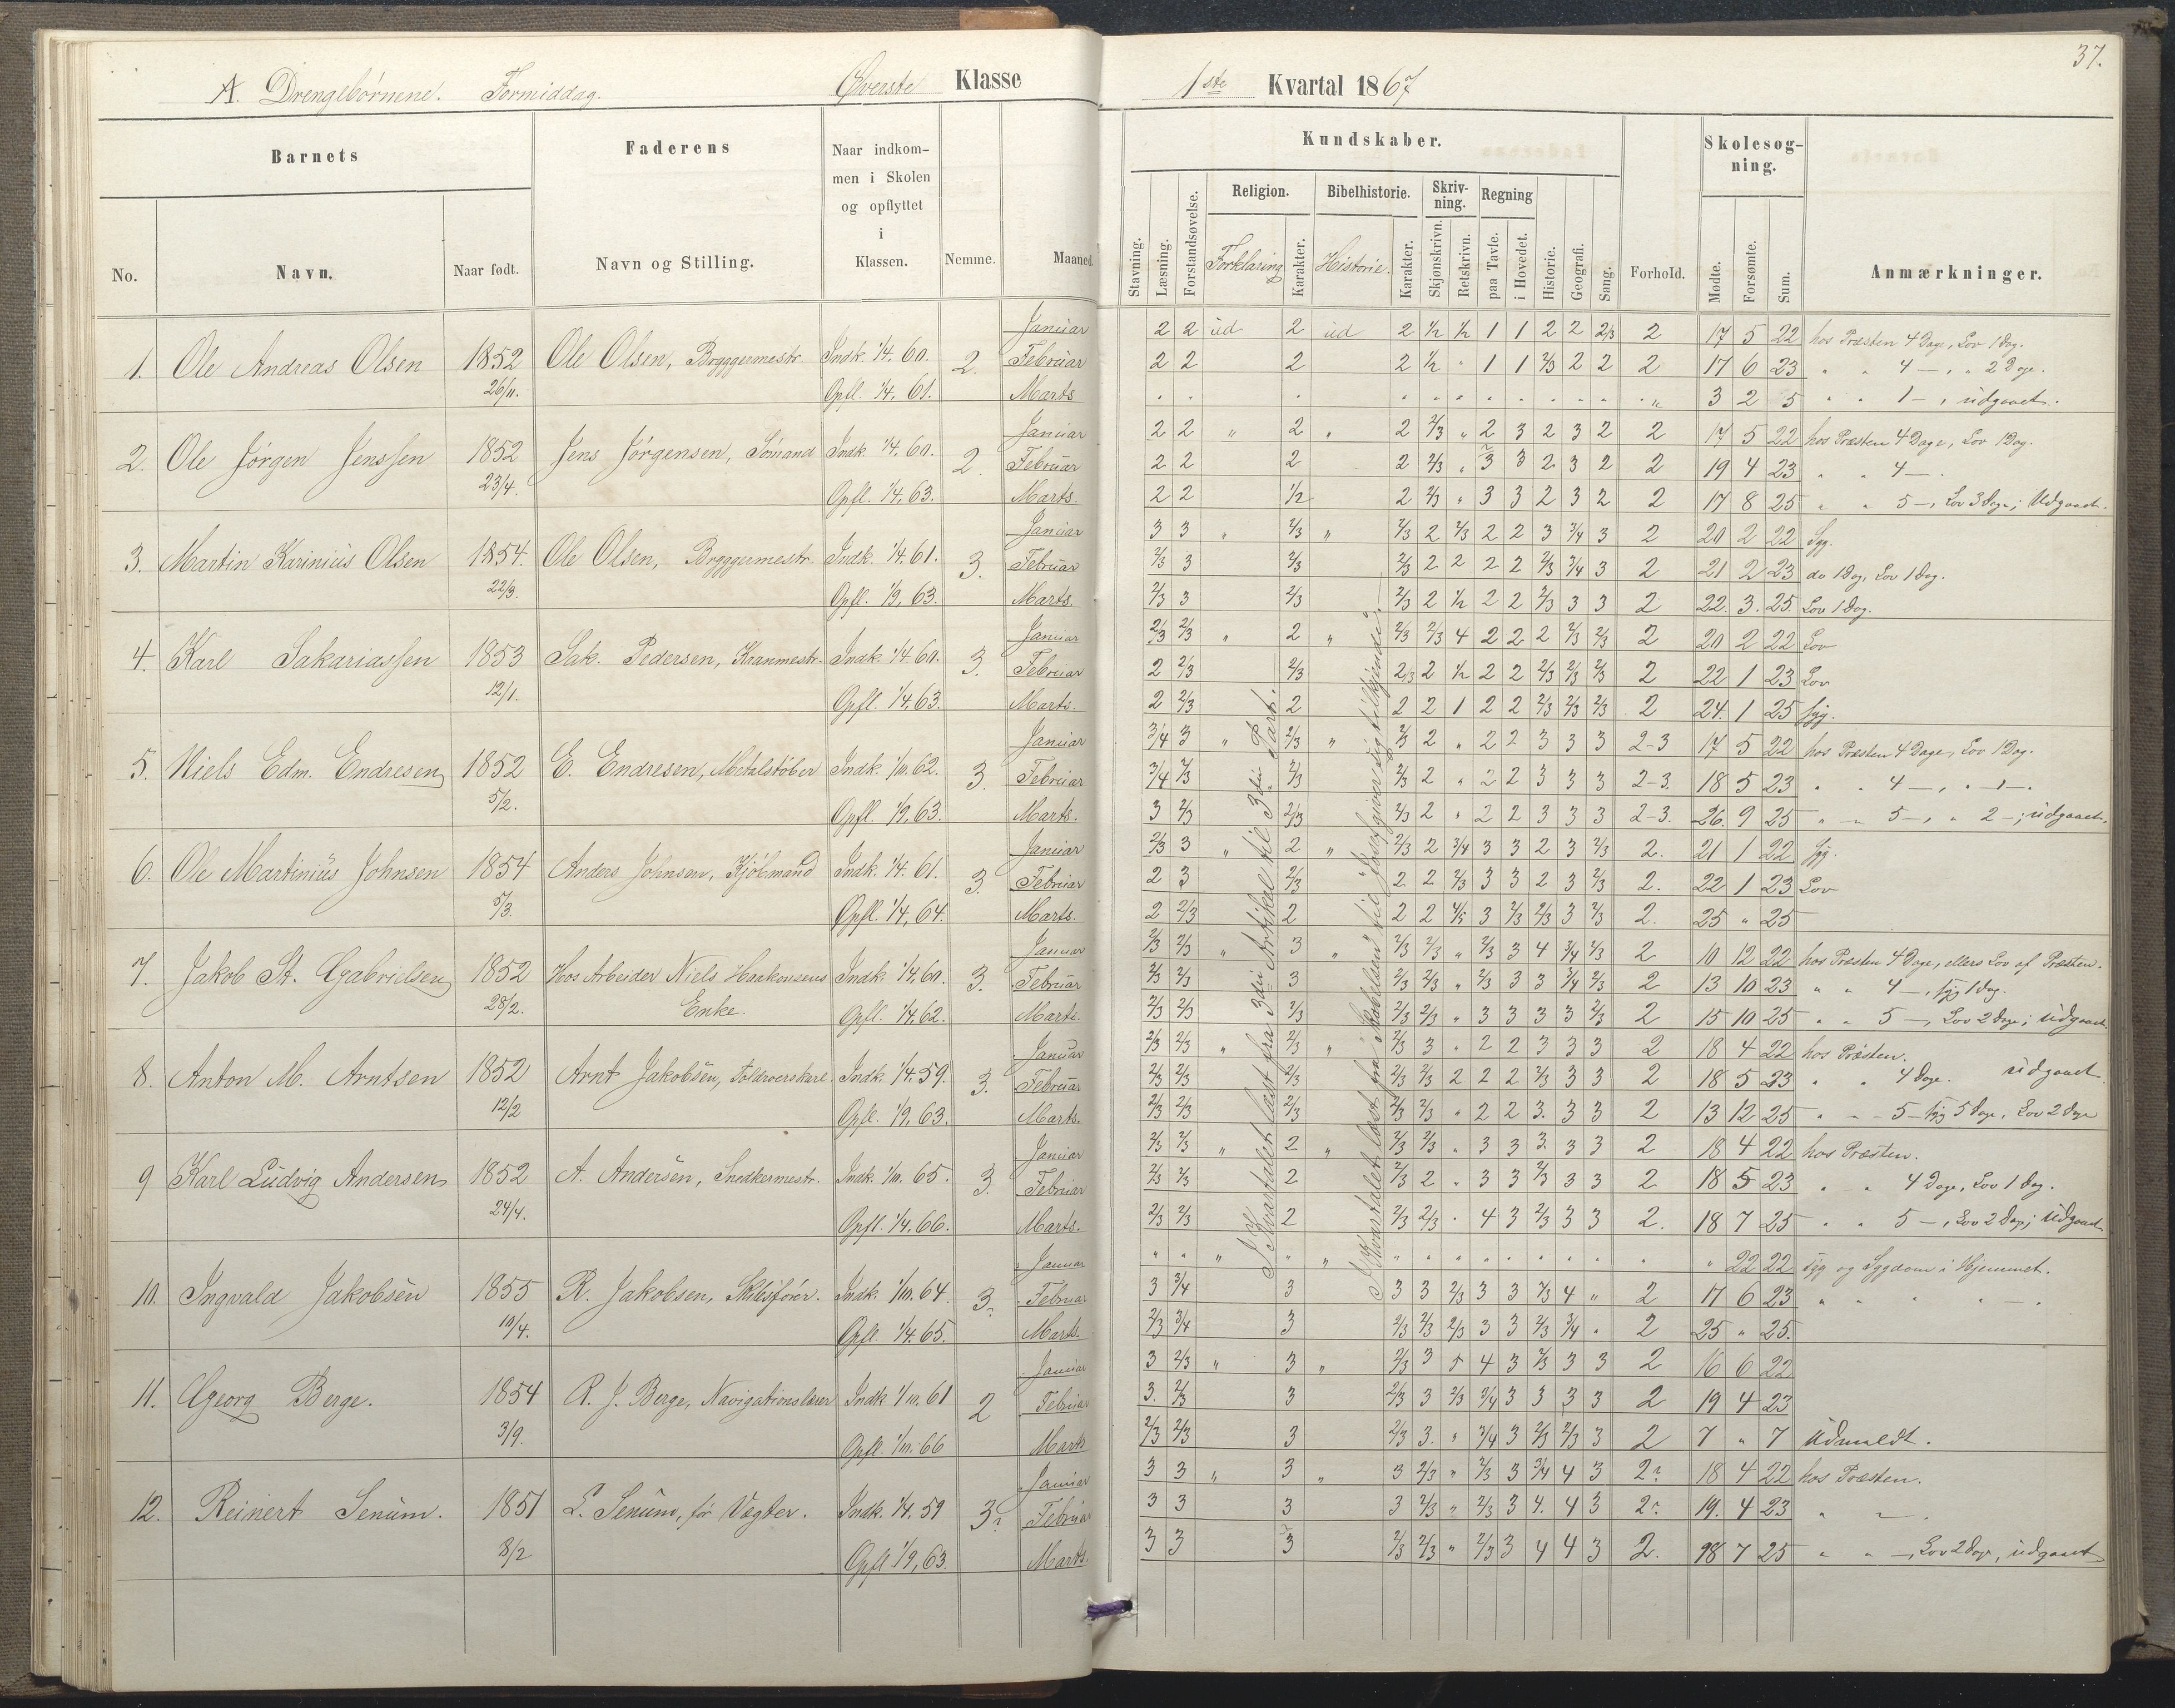 37.
A. Drengebörnene. Formiddag. Øverste Klasse
1ste Kvartal 1867
Barnets
Faderens
Naar indkom-
men i Skolen
og opflyttet
i
Klassen.
No.
Navn.
Naar født.
Navn og Stilling.
Nemme.
Maaned.
Kundskaber.
Skolesøg-
ning.
Religion.
Bibelhistorie.
Skriv-
ning.
Regning
Stavning.
Læsning.
Forstandsøvelse.
Forklaring
Karakter.
Historie.
Karakter.
Skjønskrivn.
Retskrivn.
paa Tavle.
i Hovedet.
Historie.
Geografi.
Sang.
Forhold.
Mødte.
Forsømte.
Sum.
Anmærkninger.
1. Ole Andreas Olsen 1852 26/11. Ole Olsen, Bryggermestr. Indk. 1/4. 60. Opfl. 1/4. 61. 2.
Januar 2 2 ud 2 ud 2 1/2 1/2 1 1 2 2 2/3 2 17 5 22 hos Præsten 4 Dage, Lov 1 Dag.
Februar 2 2 2 2 1/2 " 1 1 2/3 2 2 2 17 6 23 " " 4 —, " 2 Dage.
Marts 3 2 5 " " 1 —, udgaaet.
2. Ole Jörgen Jenssen 1852 23/4. Jens Jörgensen, Sömand Indk. 1/4. 60. Opfl. 1/4. 63. 2.
Januar 2 2 " 2 " 2 2/3 " 2 3 2 3 2 2 17 5 22 hos Præsten 4 Dage, Lov 1 Dag.
Februar 2 2 2 2 2/3 " 3 3 2 3 2 2 19 4 23 " " 4 —.
Marts. 2 2 1/2 2 2/3 " 3 3 2 3 2 2 17 8 25 " " 5 —, Lov 3 Dage; Udgaaet.
3. Martin Karinius Olsen 1854. 22/3. Ole Olsen, Bryggermestr. Indk. 1/4. 61. Opfl. 1/9. 63. 3.
Januar 3 3 " 2/3 " 2/3 2 2/3 2 2 3 3/4 3 2 20 2 22 Syg.
Februar 2/3 3 2/3 2/3 2 2 2 2 2/3 3/4 3 2 21 2 23 do 1 Dag, Lov 1 Dag.
Marts. 2/3 3 2/3 2/3 2 1/2 2 2 2/3 3 3 2 22. 3. 25. Lov 1 Dag.
4. Karl Sakariassen 1853 12/1. Sak. Pedersen, Kranmestr. Indk. 1/4. 60. Opfl. 1/4. 63. 3.
Januar 2/3 2/3 " 2 " 2/3 2/3 4 2 2 2 2/3 2/3 2 20 2 22 Lov
Februar 2 2/3 2/3 2/3 2 1/2 2 2 2/3 2/3 2/3 2 22 1 23 Lov
Marts. 2 2/3 2 2 2 1 2 2 2/3 2/3 2/3 2 24. 1 25 Syg.
5. Niels Edm. Endresen 1852 5/2. E. Endresen, Metalstöber Indk. 1/10. 62. Opfl. 1/9. 63. 3.
Januar 3/4 3 " 2/3 " 2/3 2 " 2 2 3 3 3 2-3 17 5 22 hos Præsten 4 Dage, Lov 1 Dag.
Februar 3/4 2/3 2/3 2/3 2 " 2 2 3 3 3 2-3. 18 5 23 " " 4 —, " 1 —.
Marts. 3 2/3 2/3 2/3 2 " 2 2 3 3 3 2-3. 26. 9 25 " " 5 —, " 2 —; udgaaet.
6. Ole Martinius Johnsen 1854 5/3. Anders Johnsen, Kjöbmand Indk. 1/4. 61. Opfl. 1/4. 64. 3.
Januar 2/3 3 " 2 " 2/3 2 3/4 3 3 2 3 2/3 2. 21 1 22 Syg.
Februar 2 3 2/3 2 2 2/3 3 3 2 3 2/3 2. 22 1 23 Lov
Marts. 2 2/3 2 2 2 4/5 3 2/3 2/3 3 2/3 2. 25 " 25
7. Jakob St. Gabrielsen 1852 28/2. Hos Arbeider Niels Haakonsens Enke. Indk. 1/4. 60. Opfl. 1/4. 62. 3.
Januar 2/3 2/3 " 3 " 2/3 2/3 " 2/3 3 4 3/4 2/3 2 10 12 22 hos Præsten 4 Dage, ellers Lov af Præsten.
Februar 2/3 2/3 3 2/3 2/3 " 2/3 3 3 3/4 2/3 2 13 10 23 " " 4 —, syg 1 Dag.
Marts. 2/3 2/3 2/3 2/3 2/3 " 3 3 3 3 2/3 2 15 10 25 " " 5 —, Lov 2 Dage; udgaaet.
8. Anton M. Arntsen 1852 12/2 Arnt Jakobsen, Toldvæerskarl. Indk. 1/4. 59. Opfl. 1/9. 63. 3.
Januar 2/3 2/3 " 2/3 " 2/3 3 " 2 2 3 3 3 2 18 4 22 hos Præsten.
Februar 2/3 2/3 2/3 2/3 2/3 2 2 2 2/3 3 3 2 18 5 23 " " 4 Dage. udgaaet
Marts. 2/3 2/3 2/3 2/3 2/3 " 2 2 3. 3 3 2 13 12 25 " " 5 — syg 5 Dage, Lov 2 Dage
9 Karl Ludvig Andersen 1852 24/4. A. Andersen, Snedkermestr. Indk. 1/10. 65. Opfl. 1/4. 66. 3.
Januar 2/3 2/3 " 2 " 2/3 2/3 " 3 3 3 3 3 2 18 4 22 hos Præsten.
Februar 2/3 2/3 2 2/3 2 " 3 3 2/3 3 3 2 18 5 23 " " 4 Dage, Lov 1 Dag.
Marts. 2/3 2/3 2 2/3 2/3 " 4 3 2/3 3 3 2. 18 7 25 " " 5 —, Lov 2 Dage; udgaaet
10. Ingvald Jakobsen 1855 10/4. R. Jakobsen, Skibsförer. Indk. 1/10. 64. Opfl. 1/4. 65. 3.
Januar " 22 22 syg og Sygdom i Hjemmet.
Februar 3 3/4 3 3 3 2/3 3 3 2/3 4 " 2 17 6 23 " " " " — .
Marts. 2/3 3/4 3 2/3 2/3 2/3 3 3 2/3 3/4 " 2 25 " 25.
11. Georg Berge. 1854 3/9. R. J. Berge, Navigationslærer Indk. 1/10. 61 Opfl. 1/10. 66 2
Januar 3 2/3 " 3 " 2/3 3 5 4 3 2/3 3 3 2 16 6 22
Februar 3. 2/3 3 2/3 3 2/3 3/4 3 3 3 3 2 19 4 23
Marts 2/3 2/3 3 2/3 3. " 3/4 3 2/3 2/3 3 2 7 " 7 Udmeldt.
12. Reinert Senum. 1851 8/2 L. Senum, før Vægter. Indk. 1/4. 59 Opfl. 1/9. 63. 3
Januar 3 3 " 3 " 3 2/3 " 2/3 3 3/4 4 3 2 18 4 22 hos Præsten.
Februar 3 3 3 3 2/3 " 2/3 3 4. 4 3 2 19. 4 23 " " .
Marts. 3 3 3 2/3 2/3 " 2/3 3 4 4 3 2. 18 7 25 " " —, Lov 2 Dage, udgaaet
I Kvartalet læst fra 3die Artikel til 3die Part.
I Kvartalet læst fra "Skabelsen" til "Josef giver sig tilkjende".